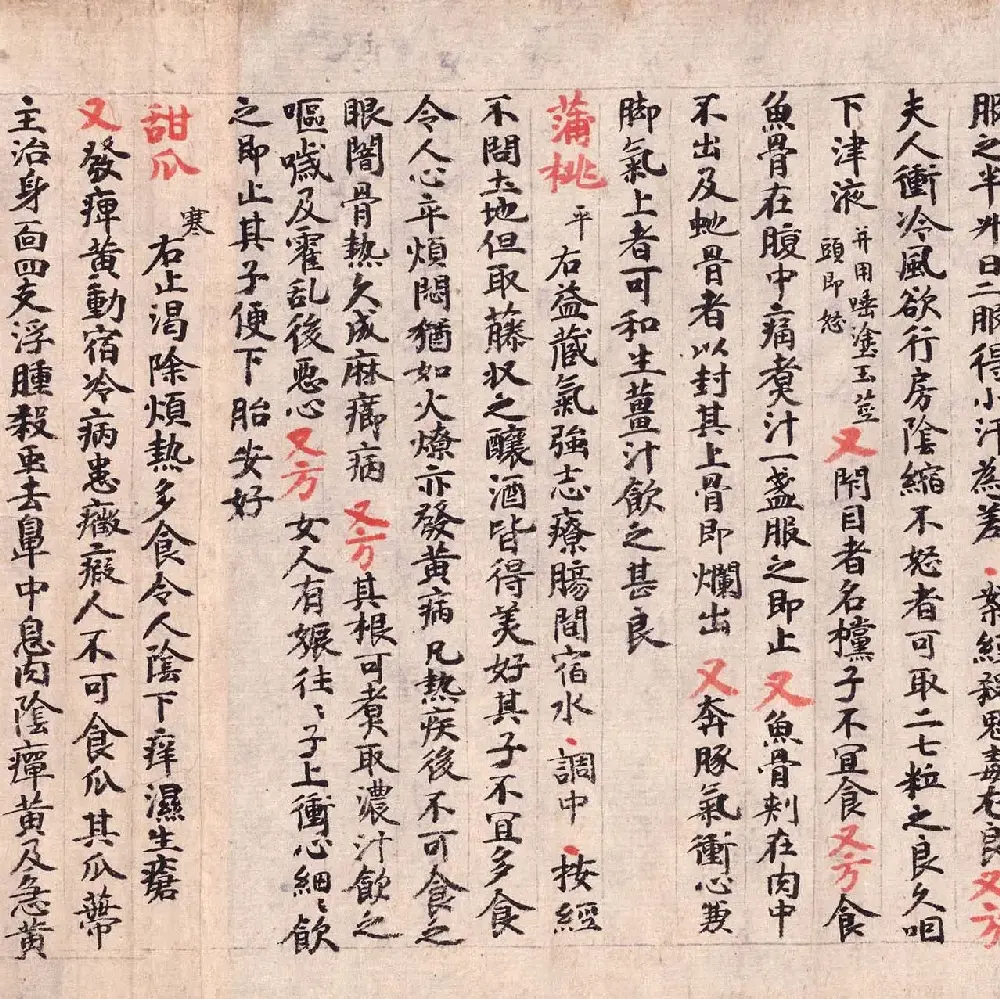 服之半升日二服得小汗為差·案經殺鬼毒右良又方
夫人衝冷風欲行房陰縮不怒者可取二七粒之良久咽
下津液并用唾塗玉莖頭即怒又閇目者名欓子不宜食又方食
魚骨在腹中痛煑汁一盞服之即止又魚骨刾在肉中
不出及虵骨者以封其上骨即爛出又奔豚氣衝心兼
脚氣上者可和生薑汁飲之甚良
蒲桃平右益藏氣強志療腸間宿水·調中·按經
不問土地但取藤状之釀酒皆得美好其子不宜多食
令人心卒煩悶猶如火燎亦發黃病凡熱疾後不可食之
眼闇骨熱久成麻癤病又方其根可煑取濃汁飲之
嘔噦及霍乱後惡心又方女人有娠往〻子上衝心細〻飲
之即止其子便下胎安好
甜瓜寒右止渴除煩熱多食令人陰下痒濕生瘡
又發痺黃動宿冷病患癥瘕人不可食瓜其瓜蔕
主治身面四支浮腫殺虫去鼻中息肉陰癉黃及急黃